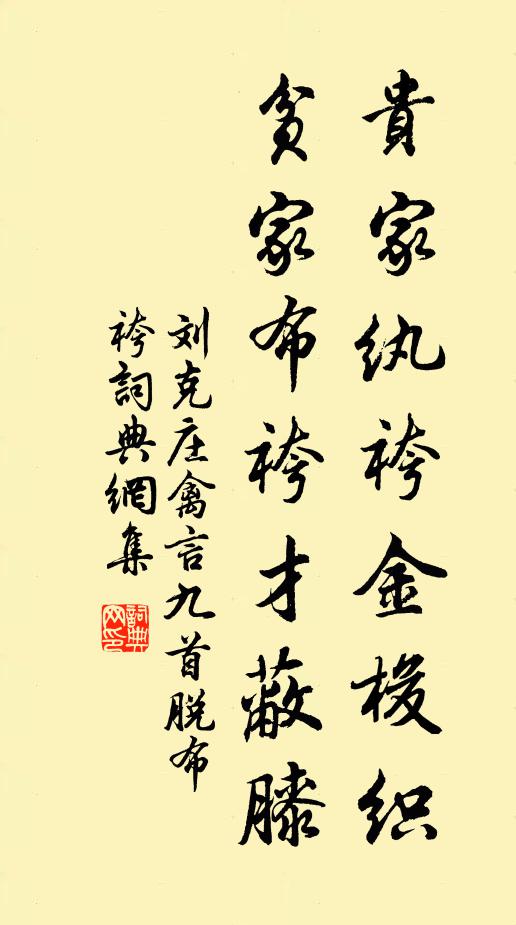 貴家纨袴金梭织
貧家布袴才蔽膝
刘克庄禽言九首脱布
袴詞典網集
詞典
网印